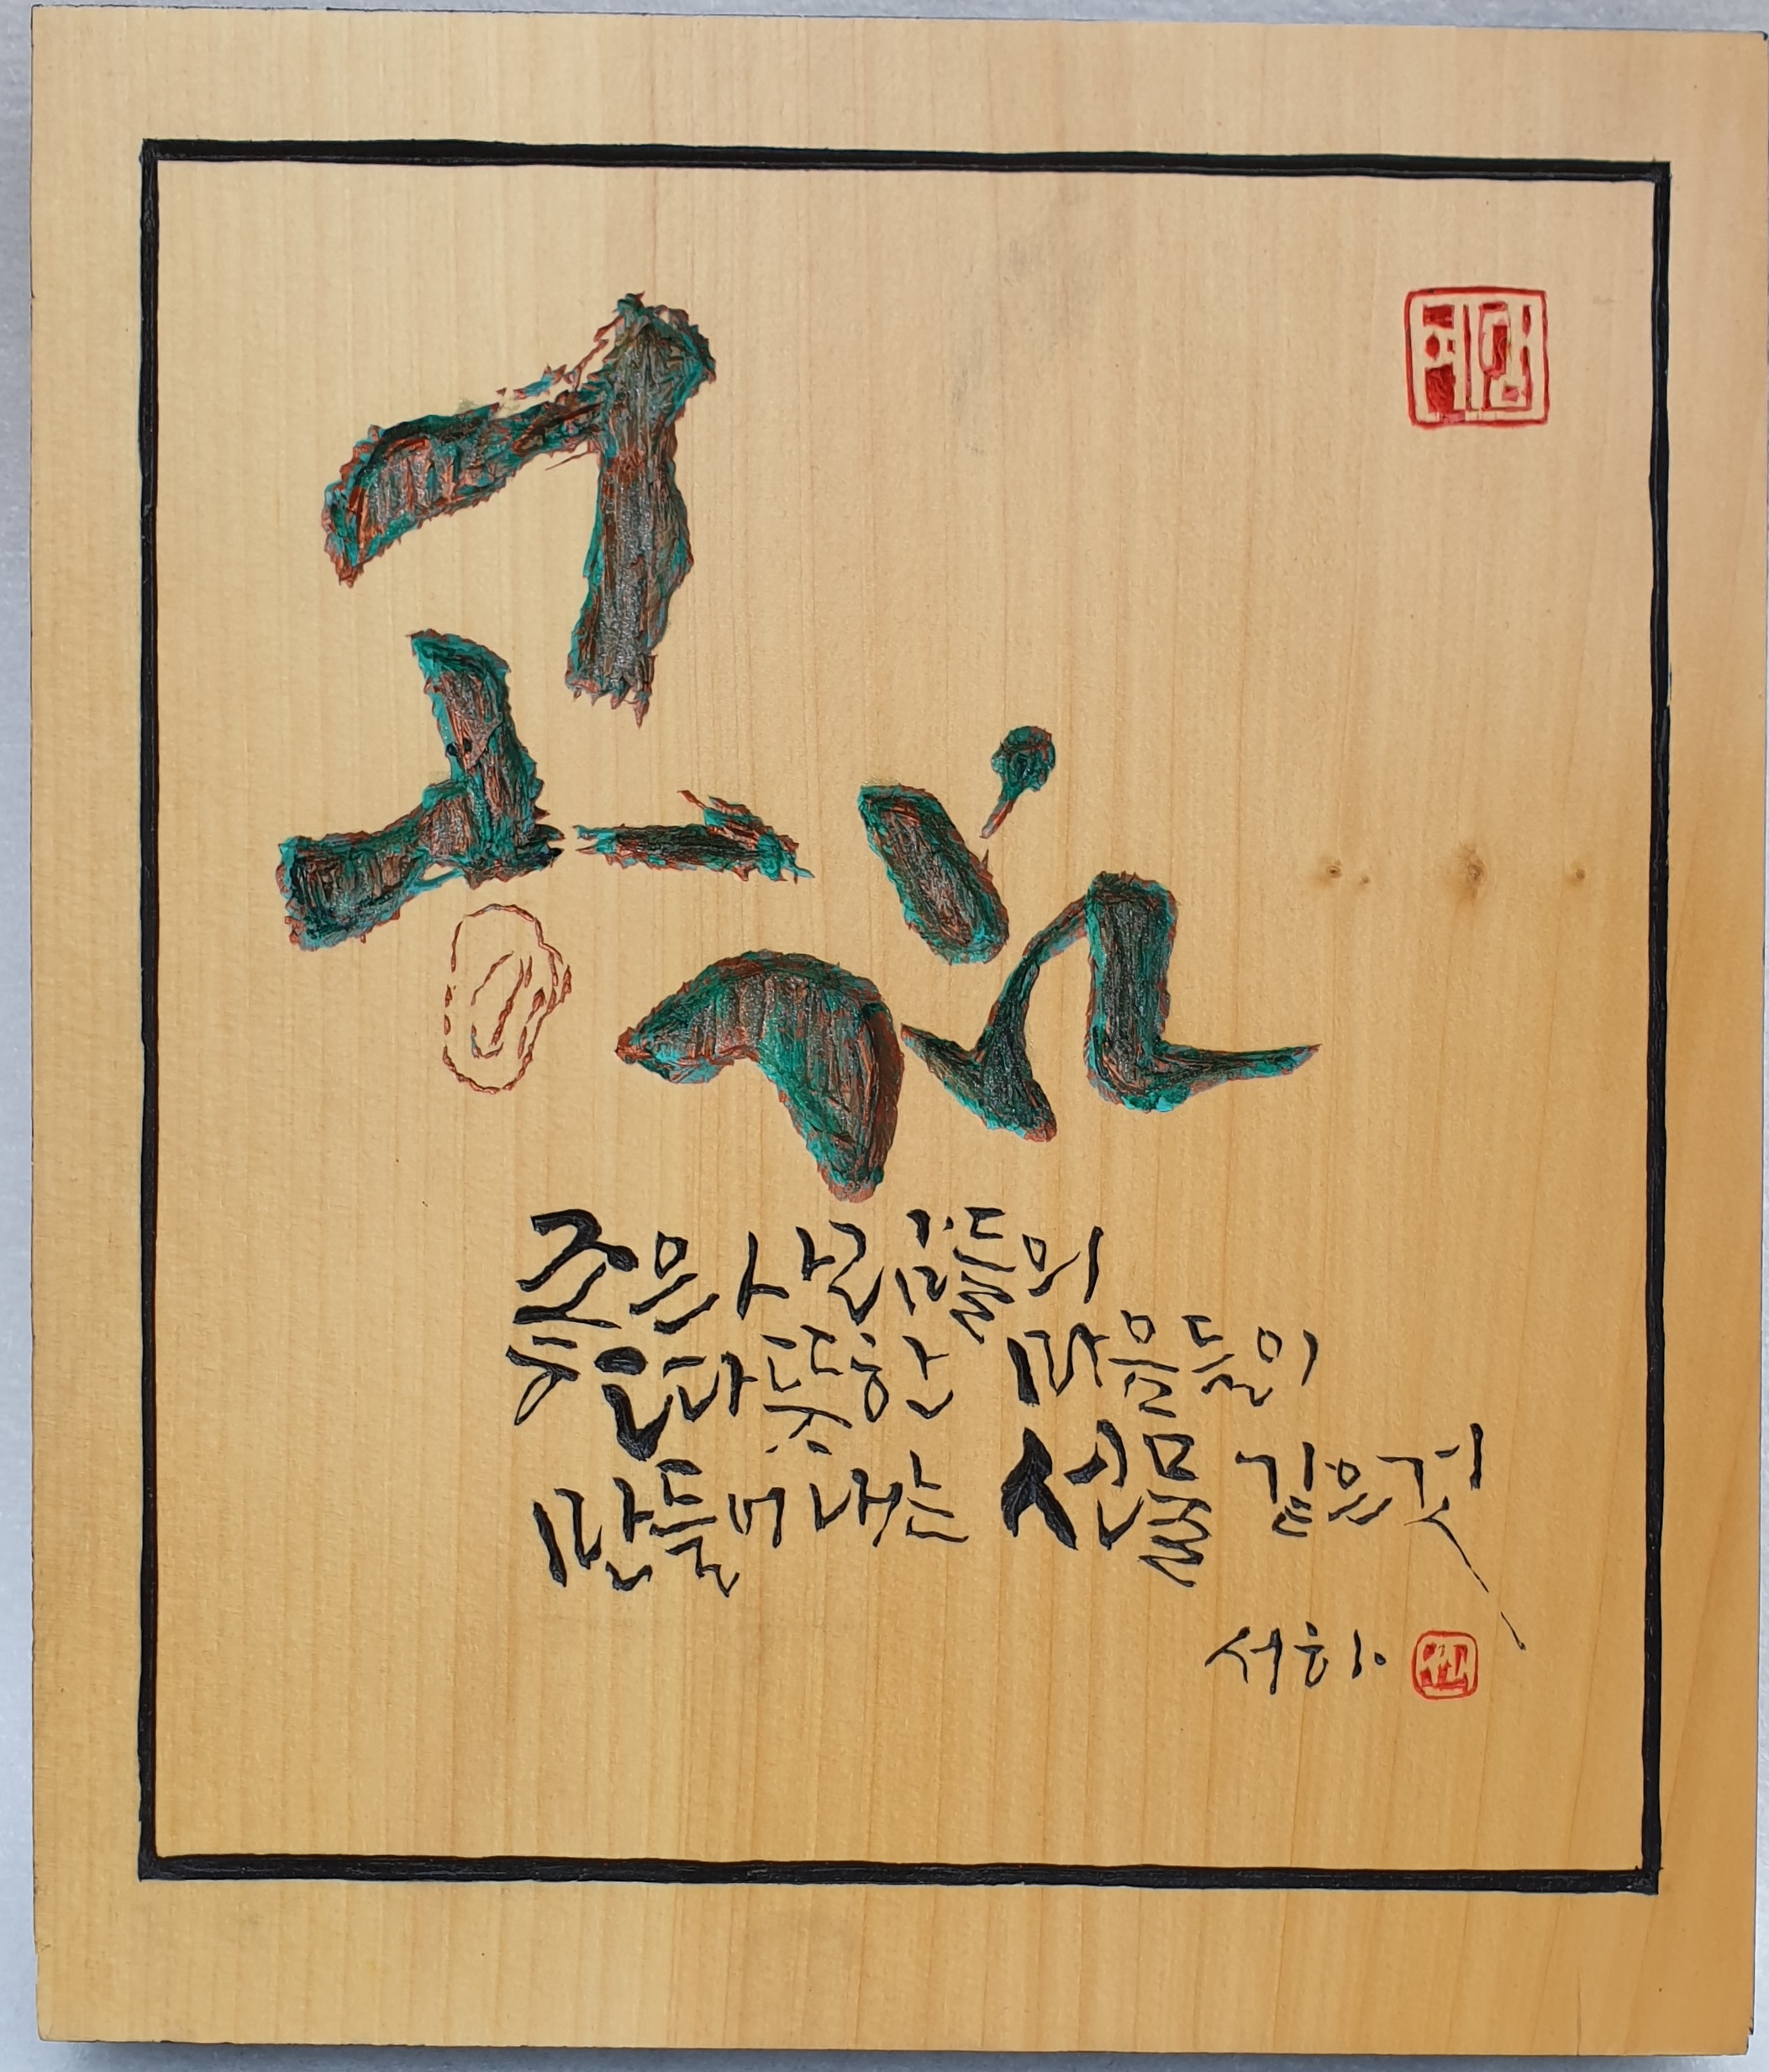 공감
좋은 사람들의
따뜻한 마음들이
만들어내는 선물 같은 것
서하.